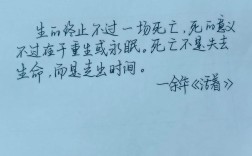 生的终止不过一场死亡，死的意义
不过在于重生或永眠。死亡不是失去
生命，而是走出时间。
—余华《活着》